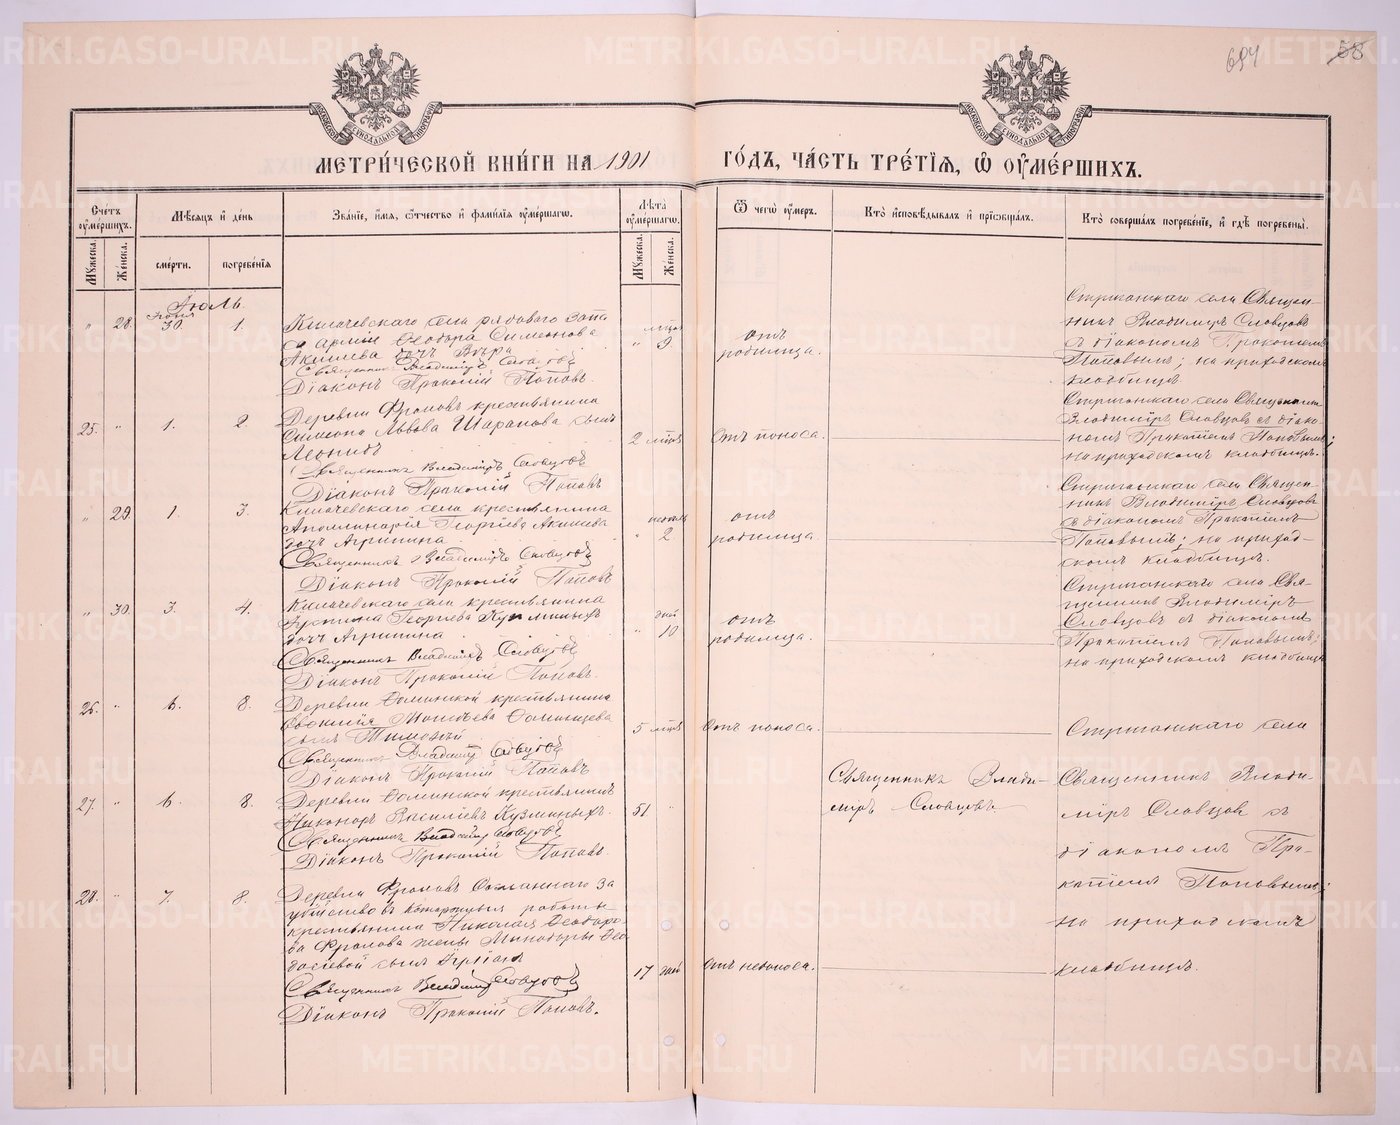 694 58
МЕТРИ́ЧЕСКОЙ КНИ́ГИ НА 1901 ГО́ДЪ, ЧА́СТЬ ТРЕ́ТІЯ, Ѽ ОУМЕ́РШИХЪ.
Сче́тъ оуме́ршихъ.
Мѣ́сяцъ и҆ де́нь
Зва́ніе, и҆́мя, ѻ҆́тчество и҆ фами́лія оуме́ршагѡ.
Лѣ́та оуме́ршагѡ.
Ѿ чегѡ̀ оу́меръ.
Кто̀ и҆сповѣ́дывалъ и҆ прїѡбща́лъ.
Кто̀ соверша́лъ погребе́ніе, и҆ гдѣ̀ погребены̀.
Му́жеска. Же́нска. сме́рти. погребе́нія Му́жеска. Же́нска.
Іюль.
" 28. Іюня 30. 1.
Килачевскаго села рядового запа-
са арміи Ѳеодора Симеонова
Акишева дочь Вѣра
Священникъ Владиміръ Словцовъ
Діаконъ Прокопій Поповъ.
" мѣся 9
отъ
родимца.
Стриганскаго села Священ-
никъ Владиміръ Словцовъ
съ діакономъ Прокопіемъ
Поповымъ; на приходскомъ
кладбищѣ.
25. " 1. 2.
Деревни Фроловъ крестьянина
Симеона Львова Шарапова сынъ
Леонидъ
Священникъ Владиміръ Словцовъ
Діаконъ Прокопій Поповъ
2 мѣся
Отъ поноса.
Стриганскаго села Священникъ
Владиміръ Словцовъ съ діако-
номъ Прокопіемъ Поповымъ;
на приходскомъ кладбищѣ.
" 29. 1. 3.
Килачевскаго села крестьянина
Аполлинарія Георгіева Акишева
дочь Агрипина
Священникъ Владиміръ Словцовъ
Діаконъ Прокопій Поповъ
" недѣль 2.
отъ
родимца.
Стриганскаго села Священ-
никъ Владиміръ Словцовъ
съ діакономъ Прокопіемъ
Поповымъ; на приход-
скомъ кладбищѣ.
" 30. 3. 4.
Килачевскаго села крестьянина
Георгіева
дочь Агрипина
Священникъ Владиміръ Словцовъ
Діаконъ Прокопій Поповъ.
" дней 10
отъ
родимца.
Стриганскаго села Свя-
щенникъ Владиміръ
Словцовъ съ діакономъ
Прокопіемъ Поповымъ;
на приходскомъ кладбищѣ
26. " 6. 8.
Деревни Ѳоминской крестьянина
Ѳоминцева
сынъ Тимоѳей
Священникъ Владиміръ Словцовъ
Діаконъ Прокопій Поповъ
5 мѣся
Отъ поноса.
Стриганскаго села
27. " 6. 8.
Деревни Ѳоминской крестьянинъ
Никаноръ Васильевъ Кузминыхъ.
Священникъ Владиміръ Словцовъ
Діаконъ Прокопій Поповъ.
51 "
Священникъ Влади-
міръ Словцовъ
Священникъ Влади-
міръ Словцовъ съ
діакономъ Про-
копіемъ Поповымъ;
28. " 7. 8.
Деревни Фроловъ Сосланнаго за
убійство въ каторжныя работы
крестьянина Николая Ѳеодоро-
ва Фролова жены Минодоры Ѳео-
досіевой сынъ
Священникъ Владиміръ Словцовъ
Діаконъ Прокопій Поповъ.
17 дней
Отъ
на приходскомъ
кладбищѣ.